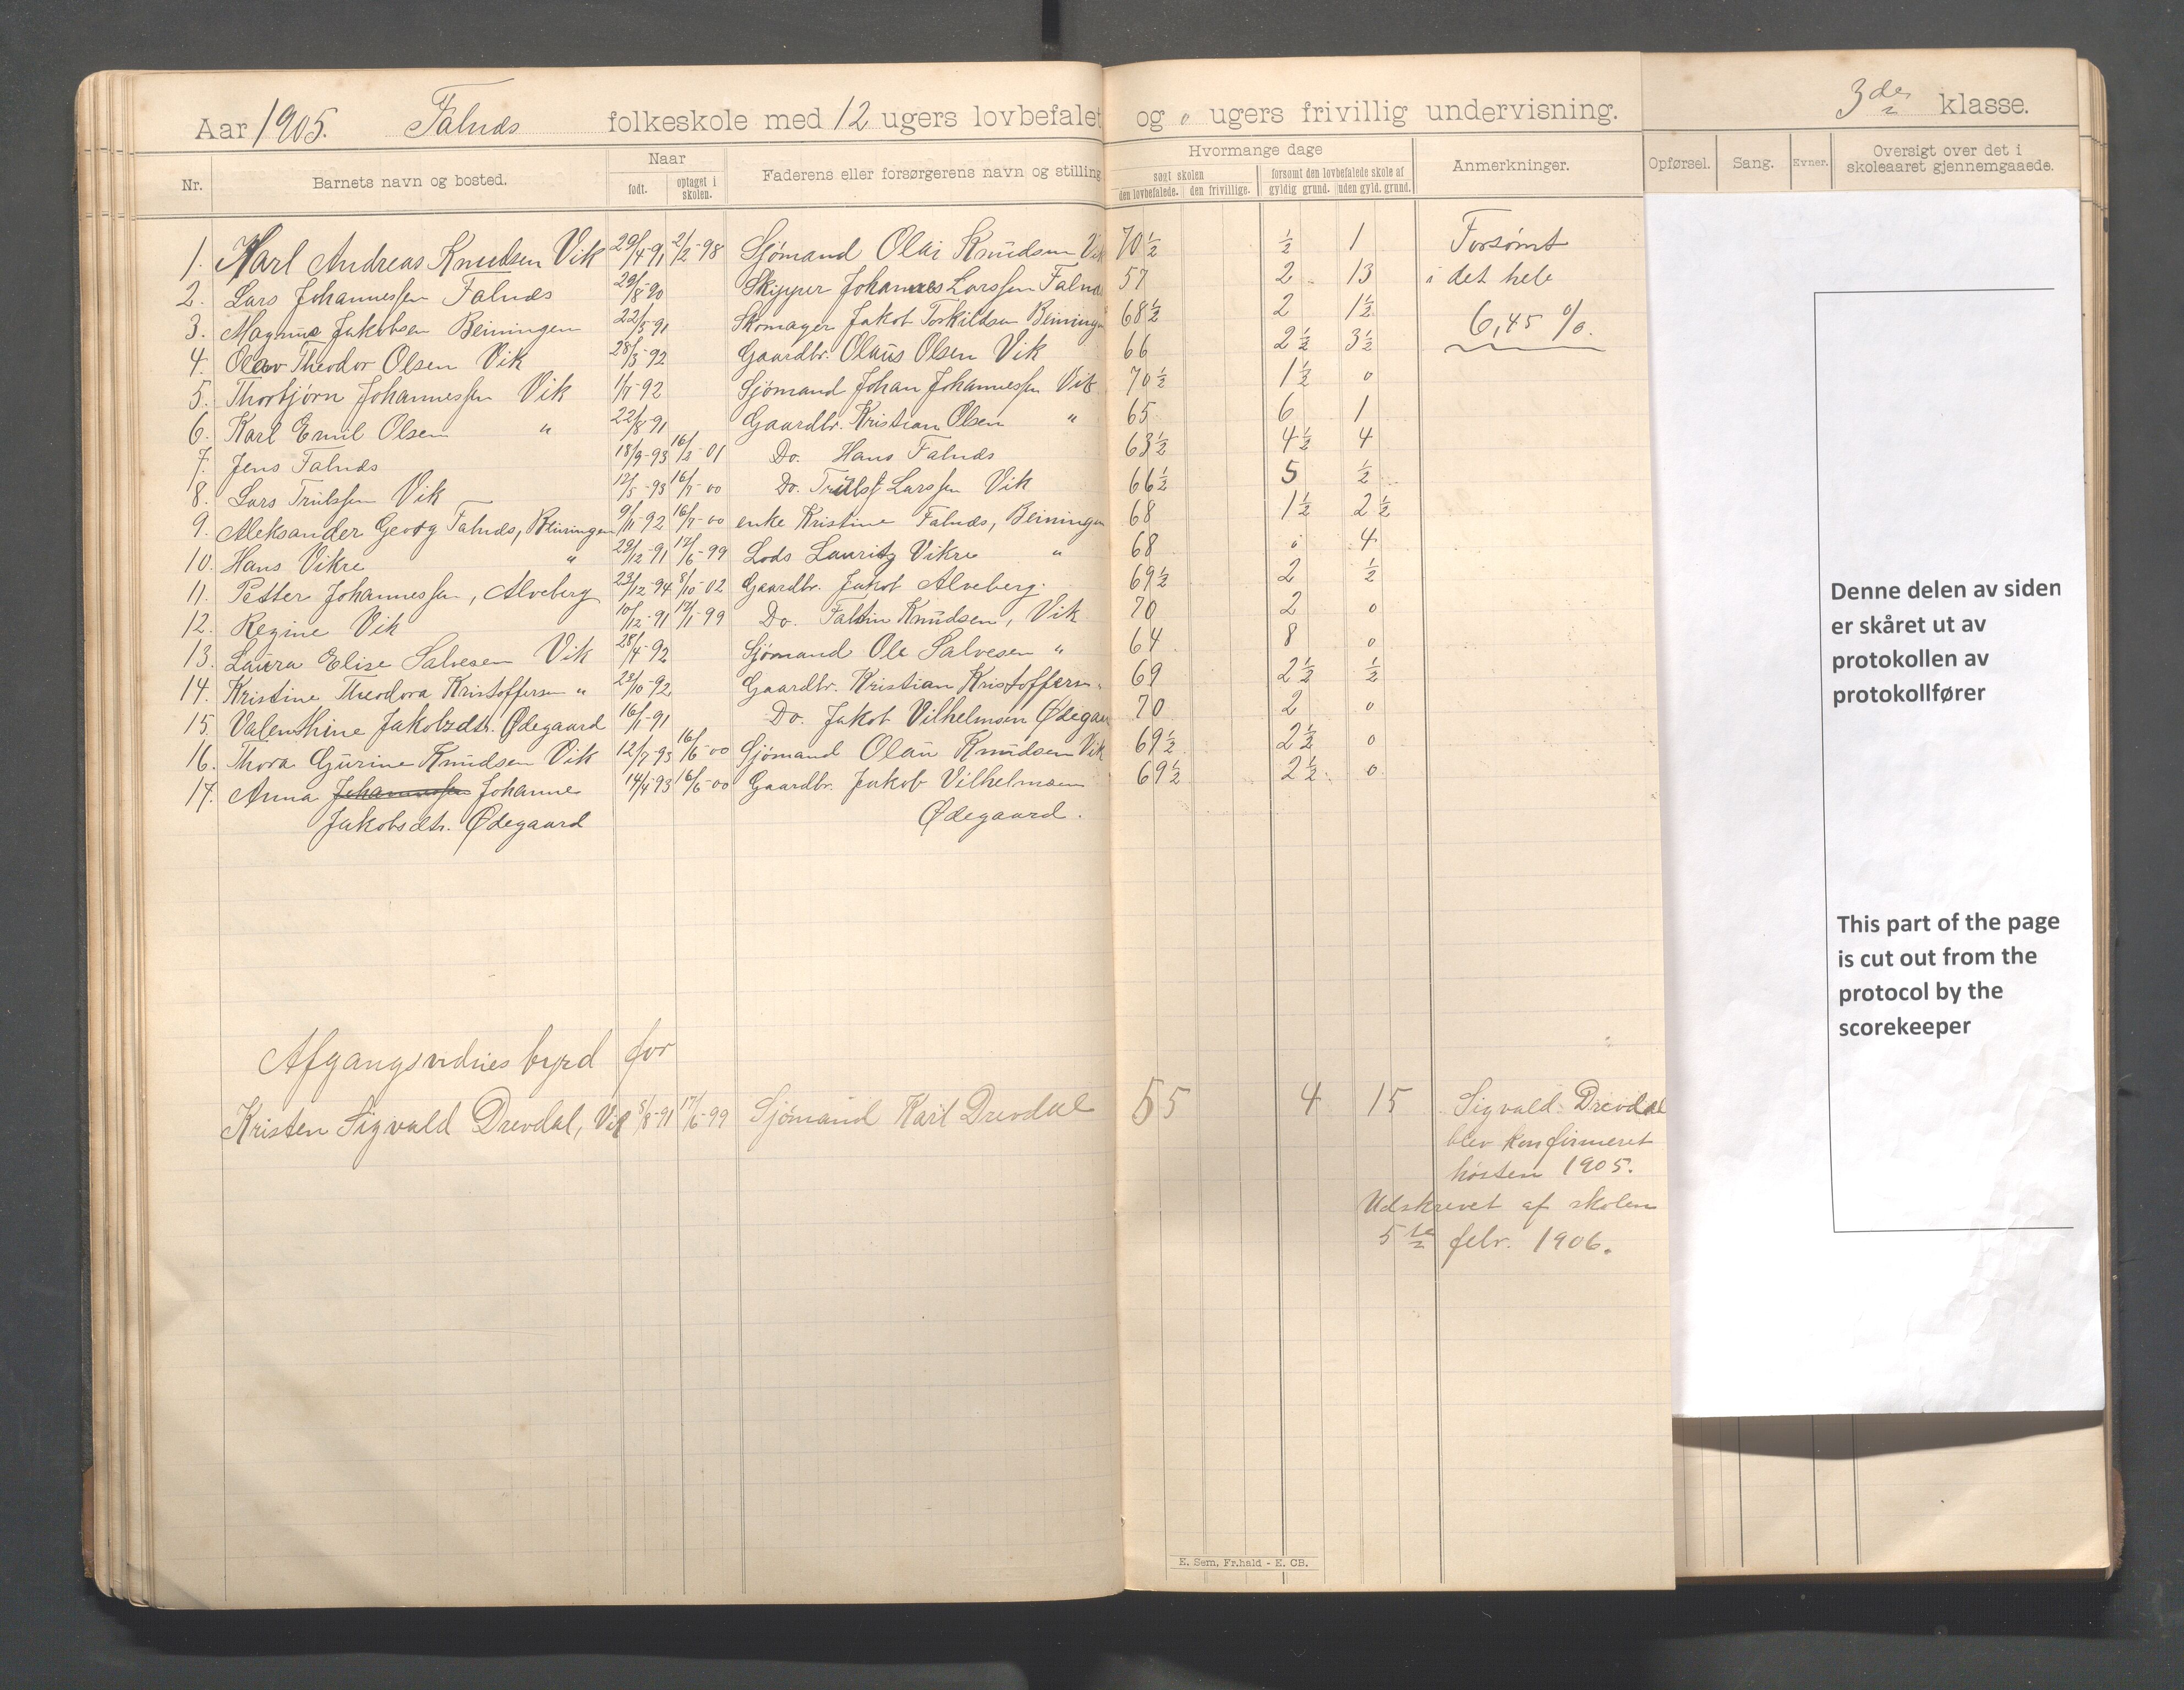 Aar 1905. Falnes folkeskole med 12 ugers lovbefalet og 0 ugers frivillig undervisning. 3die klasse.
Nr. Barnets navn og bosted. Naar født. optaget i skolen. Faderens eller forsørgerens navn og stilling Hvormange dage søgt skolen den lovbefalede. den frivillige. forsømt den lovbefalede skole af gyldig grund. uden gyld. grund. Anmerkninger. Opførsel. Sang. Evner. Oversigt over det i skoleaaret gjennemgaaede.
1. Karl Andreas Knudsen Vik 29/4-91 2/2-98 Sjømand Olai Knudsen Vik 70½ ½ 1 Forsømt
2. Lars Johannessen Falnes 29/8-90 Skipper Johannes Larssen Falnes 57 2 13 i det hele
3. Magnus Jakobsen Beiningen 22/5-91 Skomager Jakob Torkildsen Beiningen 68½ 2 1½ 6,45 %.
4. Olav Theodor Olsen Vik 28/3-92 Gaardbr. Olaus Olsen Vik 66 2½ 3½
5. Thorbjørn Johannessen Vik 1/7-92 Sjømand Johan Johannessen Vik 70½ 1½ 0
6. Karl Emil Olsen " 22/8-91 Gaardbr. Kristian Olsen " 65 6 1
7. Jens Falnes 18/9-93 16/2-01 Do. Hans Falnes 63½ 4½ 4
8. Lars Trulssen Vik 12/5-93 16/7-00 Do. Truls Larssen Vik 66½ 5 ½
9. Aleksander Georg Falnes, Beiningen 9/11-92 16/7-00 enke Kristine Falnes, Beiningen 68 1½ 2½
10. Hans Vikre " 29/12-91 12/6-99 Lods Lauritz Vikre " 68 0 4
11. Petter Johannessen, Alveberg 29/12-94 8/10-02 Gaardbr. Jakob Alveberg. 69½ 2 ½
12. Regine Vik 10/12-91 12/1-99 Do. Faltin Knudsen, Vik 70 2 0
13. Laura Elise Salvesen Vik 28/4-92 Sjømand Ole Salvesen " 64 8 0
14. Kristine Theodora Kristoffersen " 28/10-92 Gaardbr. Kristian Kristoffersen " 69 2½ ½
15. Valenthine Jakobsdtr. Ødegaard 16/1-91 Do. Jakob Vilhelmsen Ødegaard 70 2 0
16. Thora Gurine Knudsen Vik 12/7-93 16/6-00 Sjømand Olau Knudsen Vik 69½ 2½ 0
17. Anna Johannessen Johanne 14/4-93 16/6-00 Gaardbr. Jakob Vilhelmsen 69½ 2½ 0
Jakobsdtr. Ødegaard Ødegaard.
Afgangsvidnesbyrd for
Kristen Sigvald Drevdal, Vik 5/8-91 17/6-99 Sjømand Karl Drevdal 55 4 15 Sigvald Drevdal
blev konfirmeret
høsten 1905.
Udskrevet af skolen
5te febr. 1906.
E. Sem, Fr.hald - E. CB.
Denne delen av siden
er skåret ut av
protokollen av
protokollfører
This part of the page
is cut out from the
protocol by the
scorekeeper